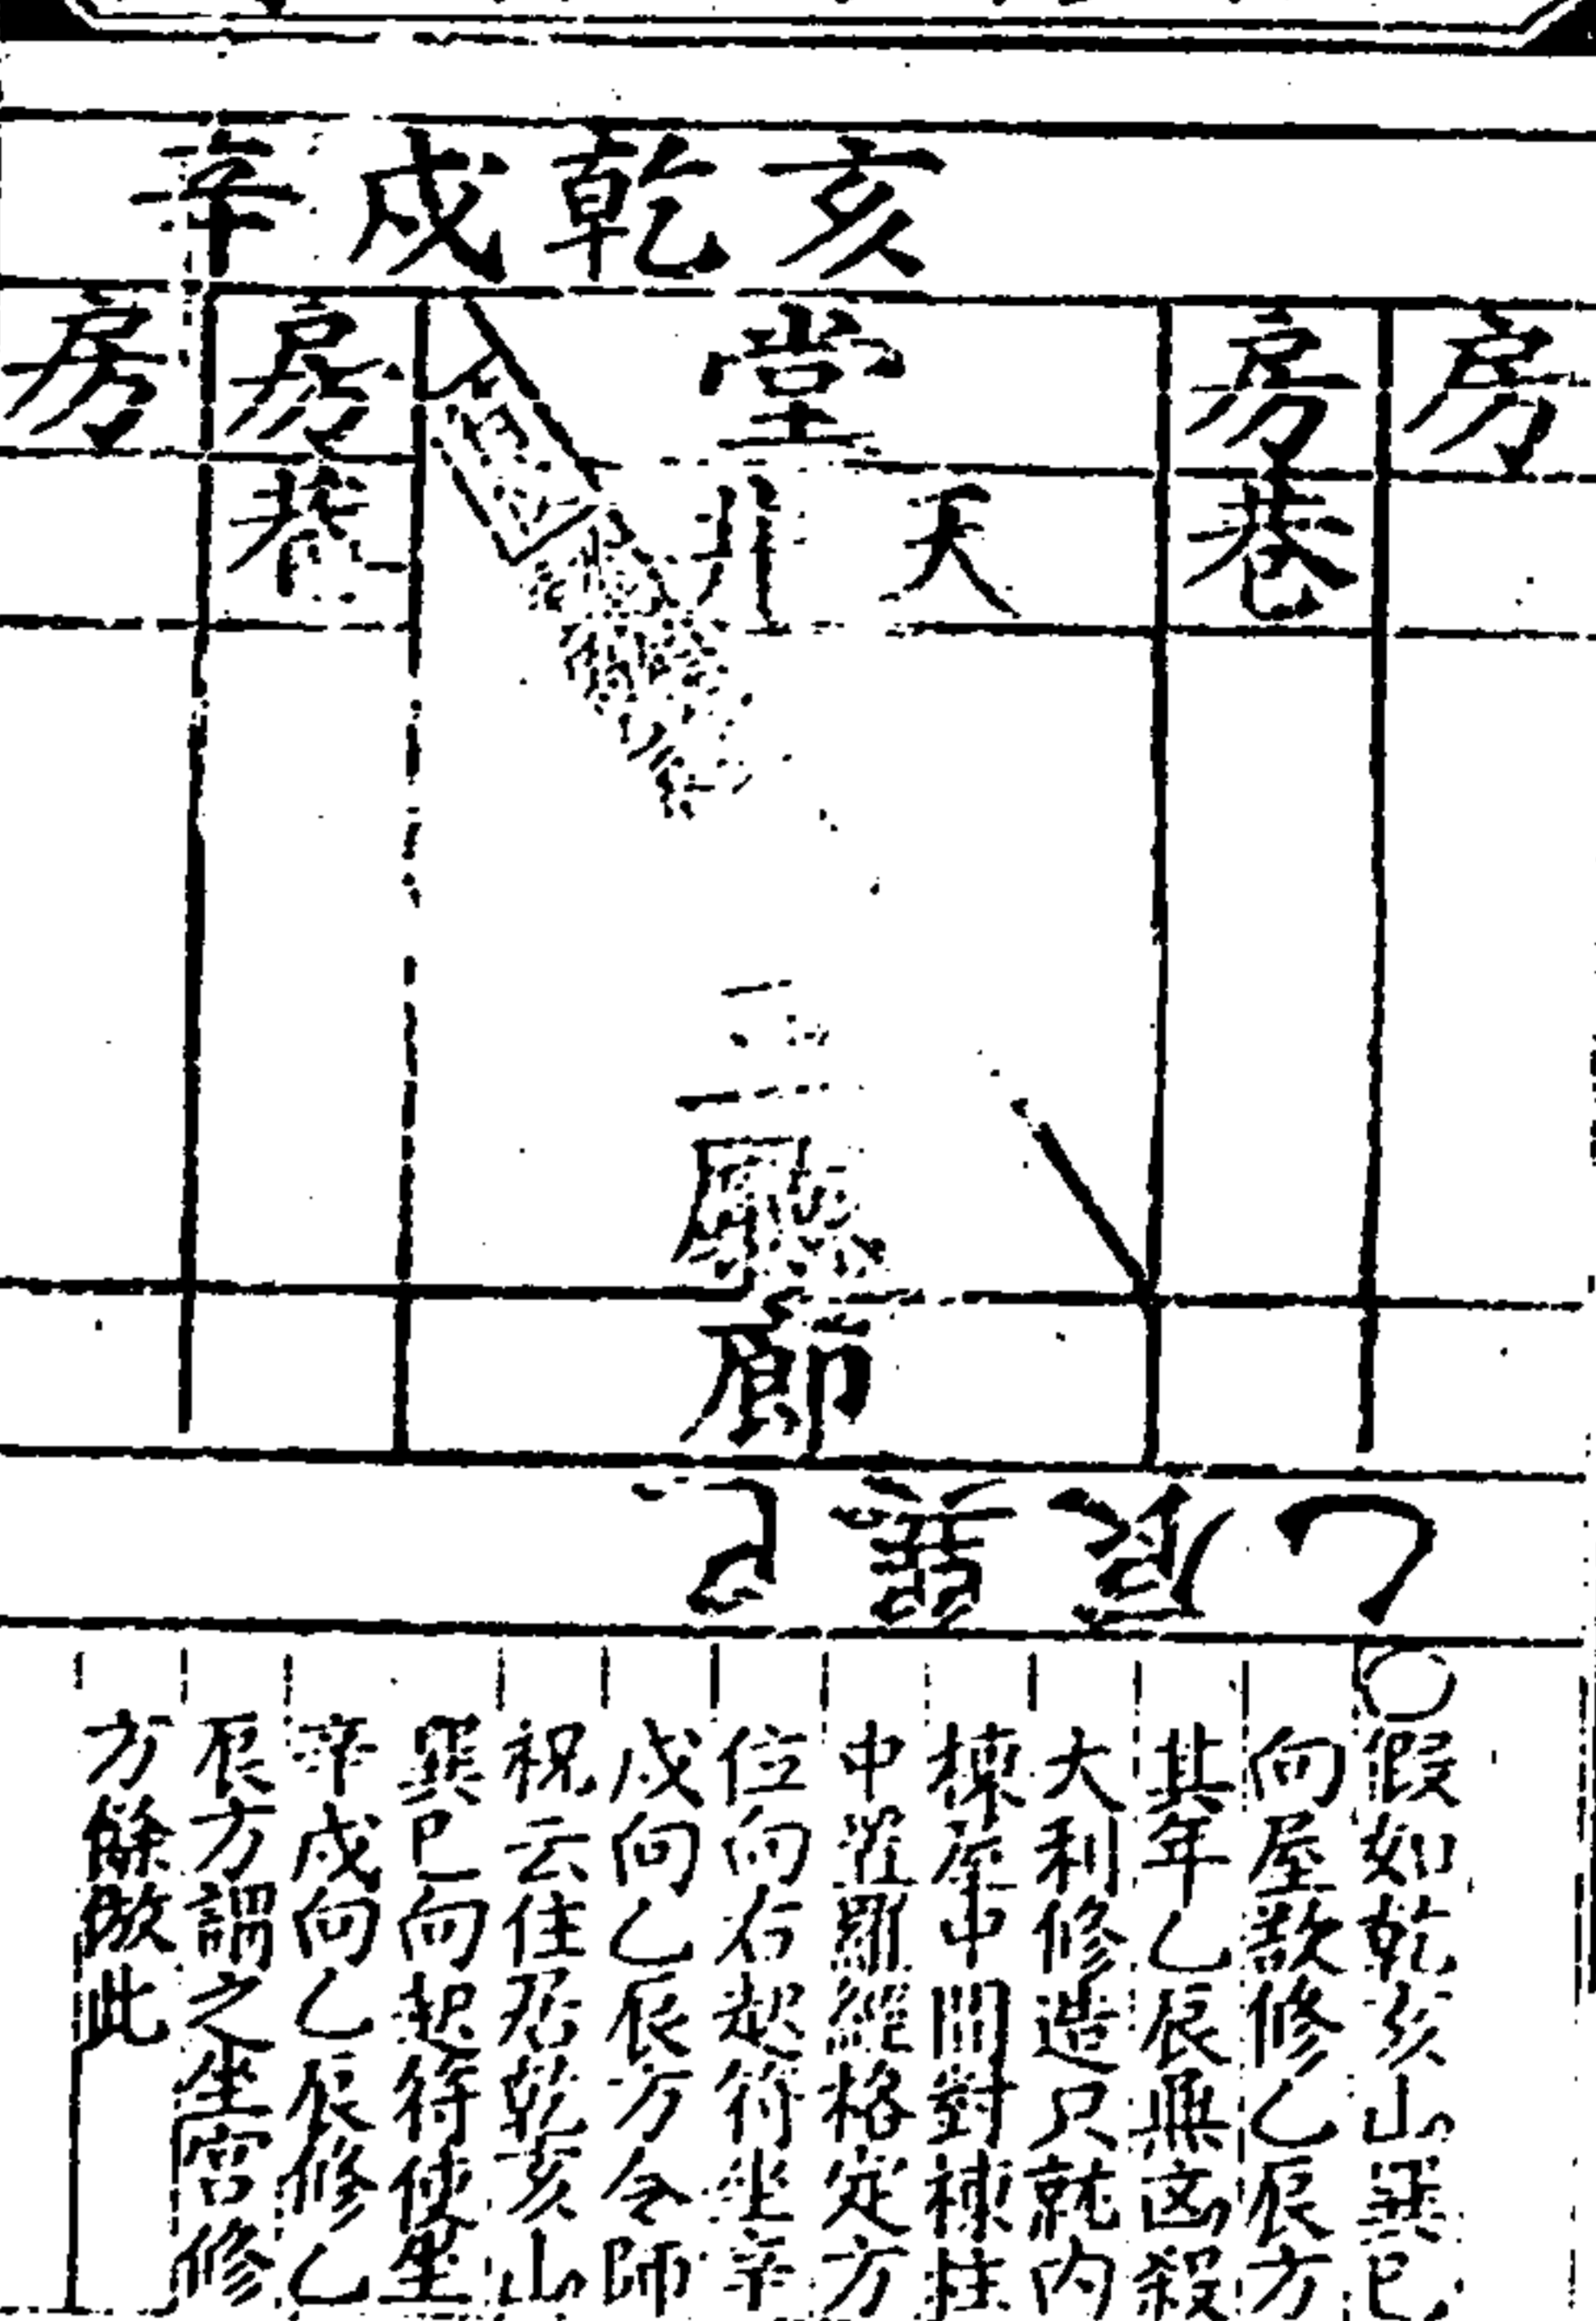 亥乾戍辛
房房堂房房
巷天井巷
廳
廊
乙辰巽巳
○假如乾亥山巽巳
向屋欲修乙辰方
其年乙辰無凶殺
大利修造只就内
棟屋中間對棟柱
中置羅經格定方
位向右起符坐辛
戍向乙辰方令師
祝云住居乾亥山
巽巳向起符使坐
辛戍向乙辰修乙
辰方謂之坐宮修
方餘倣此